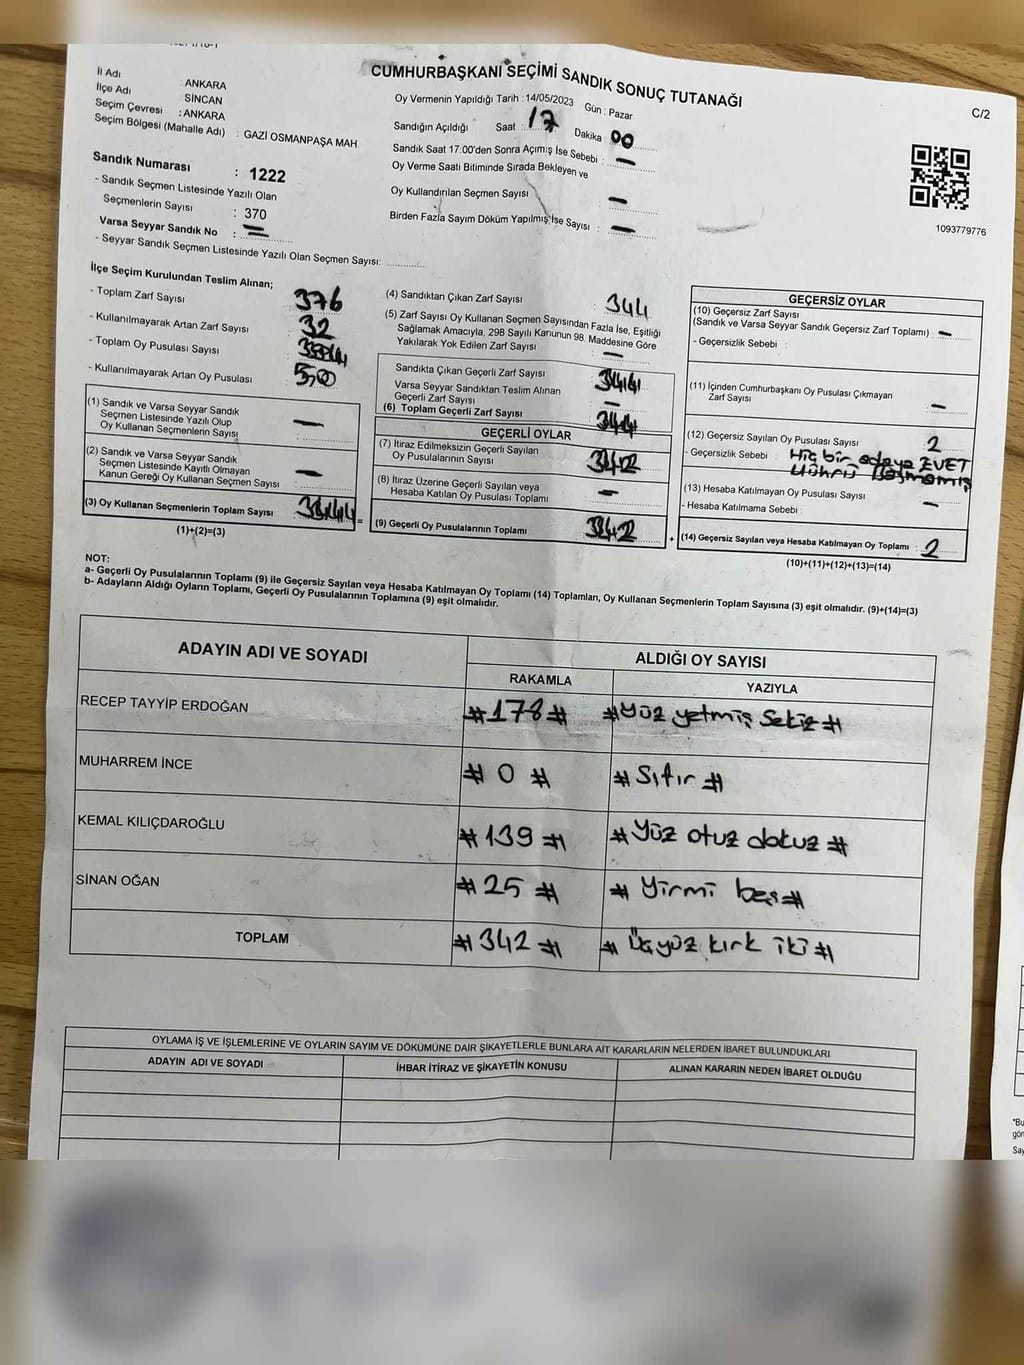 CUMHURBAŞKANI SEÇİMİ SANDIK SONUÇ TUTANAĞI
C/2
İl Adı : ANKARA
İlçe Adı : SİNCAN
Seçim Çevresi : ANKARA
Seçim Bölgesi (Mahalle Adı) : GAZİ OSMANPAŞA MAH.
Sandık Numarası : 1222
- Sandık Seçmen Listesinde Yazılı Olan
Seçmenlerin Sayısı : 370
Varsa Seyyar Sandık No : =
- Seyyar Sandık Seçmen Listesinde Yazılı Olan Seçmen Sayısı:
Oy Vermenin Yapıldığı Tarih : 14/05/2023 Gün : Pazar
Sandığın Açıldığı Saat : 17 Dakika : 00
Sandık Saat 17:00'den Sonra Açımış İse Sebebi : —
Oy Verme Saati Bitiminde Sırada Bekleyen ve
Oy Kullandırılan Seçmen Sayısı —
Birden Fazla Sayım Döküm Yapılmış İse Sayısı : —
1093779776
İlçe Seçim Kurulundan Teslim Alınan;
- Toplam Zarf Sayısı : 376
- Kullanılmayarak Artan Zarf Sayısı : 32
- Toplam Oy Pusulası Sayısı :
- Kullanılmayarak Artan Oy Pusulası :
(1) Sandık ve Varsa Seyyar Sandık
Seçmen Listesinde Yazılı Olup
Oy Kullanan Seçmenlerin Sayısı : —
(2) Sandık ve Varsa Seyyar Sandık
Seçmen Listesinde Kayıtlı Olmayan
Kanun Gereği Oy Kullanan Seçmen Sayısı : —
(3) Oy Kullanan Seçmenlerin Toplam Sayısı : 344 =
(1)+(2)=(3)
(4) Sandıktan Çıkan Zarf Sayısı : 344
(5) Zarf Sayısı Oy Kullanan Seçmen Sayısından Fazla İse, Eşitliği
Sağlamak Amacıyla, 298 Sayılı Kanunun 98. Maddesine Göre
Yakılarak Yok Edilen Zarf Sayısı : —
Sandıkta Çıkan Geçerli Zarf Sayısı 344
Varsa Seyyar Sandıktan Teslim Alınan
Geçerli Zarf Sayısı —
(6) Toplam Geçerli Zarf Sayısı 344
GEÇERLİ OYLAR
(7) İtiraz Edilmeksizin Geçerli Sayılan
Oy Pusulalarının Sayısı : 342
(8) İtiraz Üzerine Geçerli Sayılan veya
Hesaba Katılan Oy Pusulası Toplamı : —
(9) Geçerli Oy Pusulalarının Toplamı 342 +
GEÇERSİZ OYLAR
(10) Geçersiz Zarf Sayısı
(Sandık ve Varsa Seyyar Sandık Geçersiz Zarf Toplamı) : —
- Geçersizlik Sebebi :
(11) İçinden Cumhurbaşkanı Oy Pusulası Çıkmayan
Zarf Sayısı —
(12) Geçersiz Sayılan Oy Pusulası Sayısı : 2
- Geçersizlik Sebebi : Hiç bir adaya EVET
Mührü Basmamış
(13) Hesaba Katılmayan Oy Pusulası Sayısı : —
- Hesaba Katılmama Sebebi :
(14) Geçersiz Sayılan veya Hesaba Katılmayan Oy Toplamı : 2
(10)+(11)+(12)+(13)=(14)
NOT:
a- Geçerli Oy Pusulalarının Toplamı (9) ile Geçersiz Sayılan veya Hesaba Katılmayan Oy Toplamı (14) Toplamları, Oy Kullanan Seçmenlerin Toplam Sayısına (3) eşit olmalıdır. (9)+(14)=(3)
b- Adayların Aldığı Oyların Toplamı, Geçerli Oy Pusulalarının Toplamına (9) eşit olmalıdır.
ADAYIN ADI VE SOYADI ALDIĞI OY SAYISI
RAKAMLA YAZIYLA
RECEP TAYYİP ERDOĞAN #178# #Yüz yetmiş sekiz#
MUHARREM İNCE # 0 # # Sıfır #
KEMAL KILIÇDAROĞLU #139 # #Yüz otuz dokuz #
SİNAN OĞAN #25 # # Yirmi beş#
TOPLAM #342 # # Üçyüz kırk iki #
OYLAMA İŞ VE İŞLEMLERİNE VE OYLARIN SAYIM VE DÖKÜMÜNE DAİR ŞİKAYETLERLE BUNLARA AİT KARARLARIN NELERDEN İBARET BULUNDUKLARI
ADAYIN ADI VE SOYADI İHBAR İTİRAZ VE ŞİKAYETİN KONUSU ALINAN KARARIN NEDEN İBARET OLDUĞU